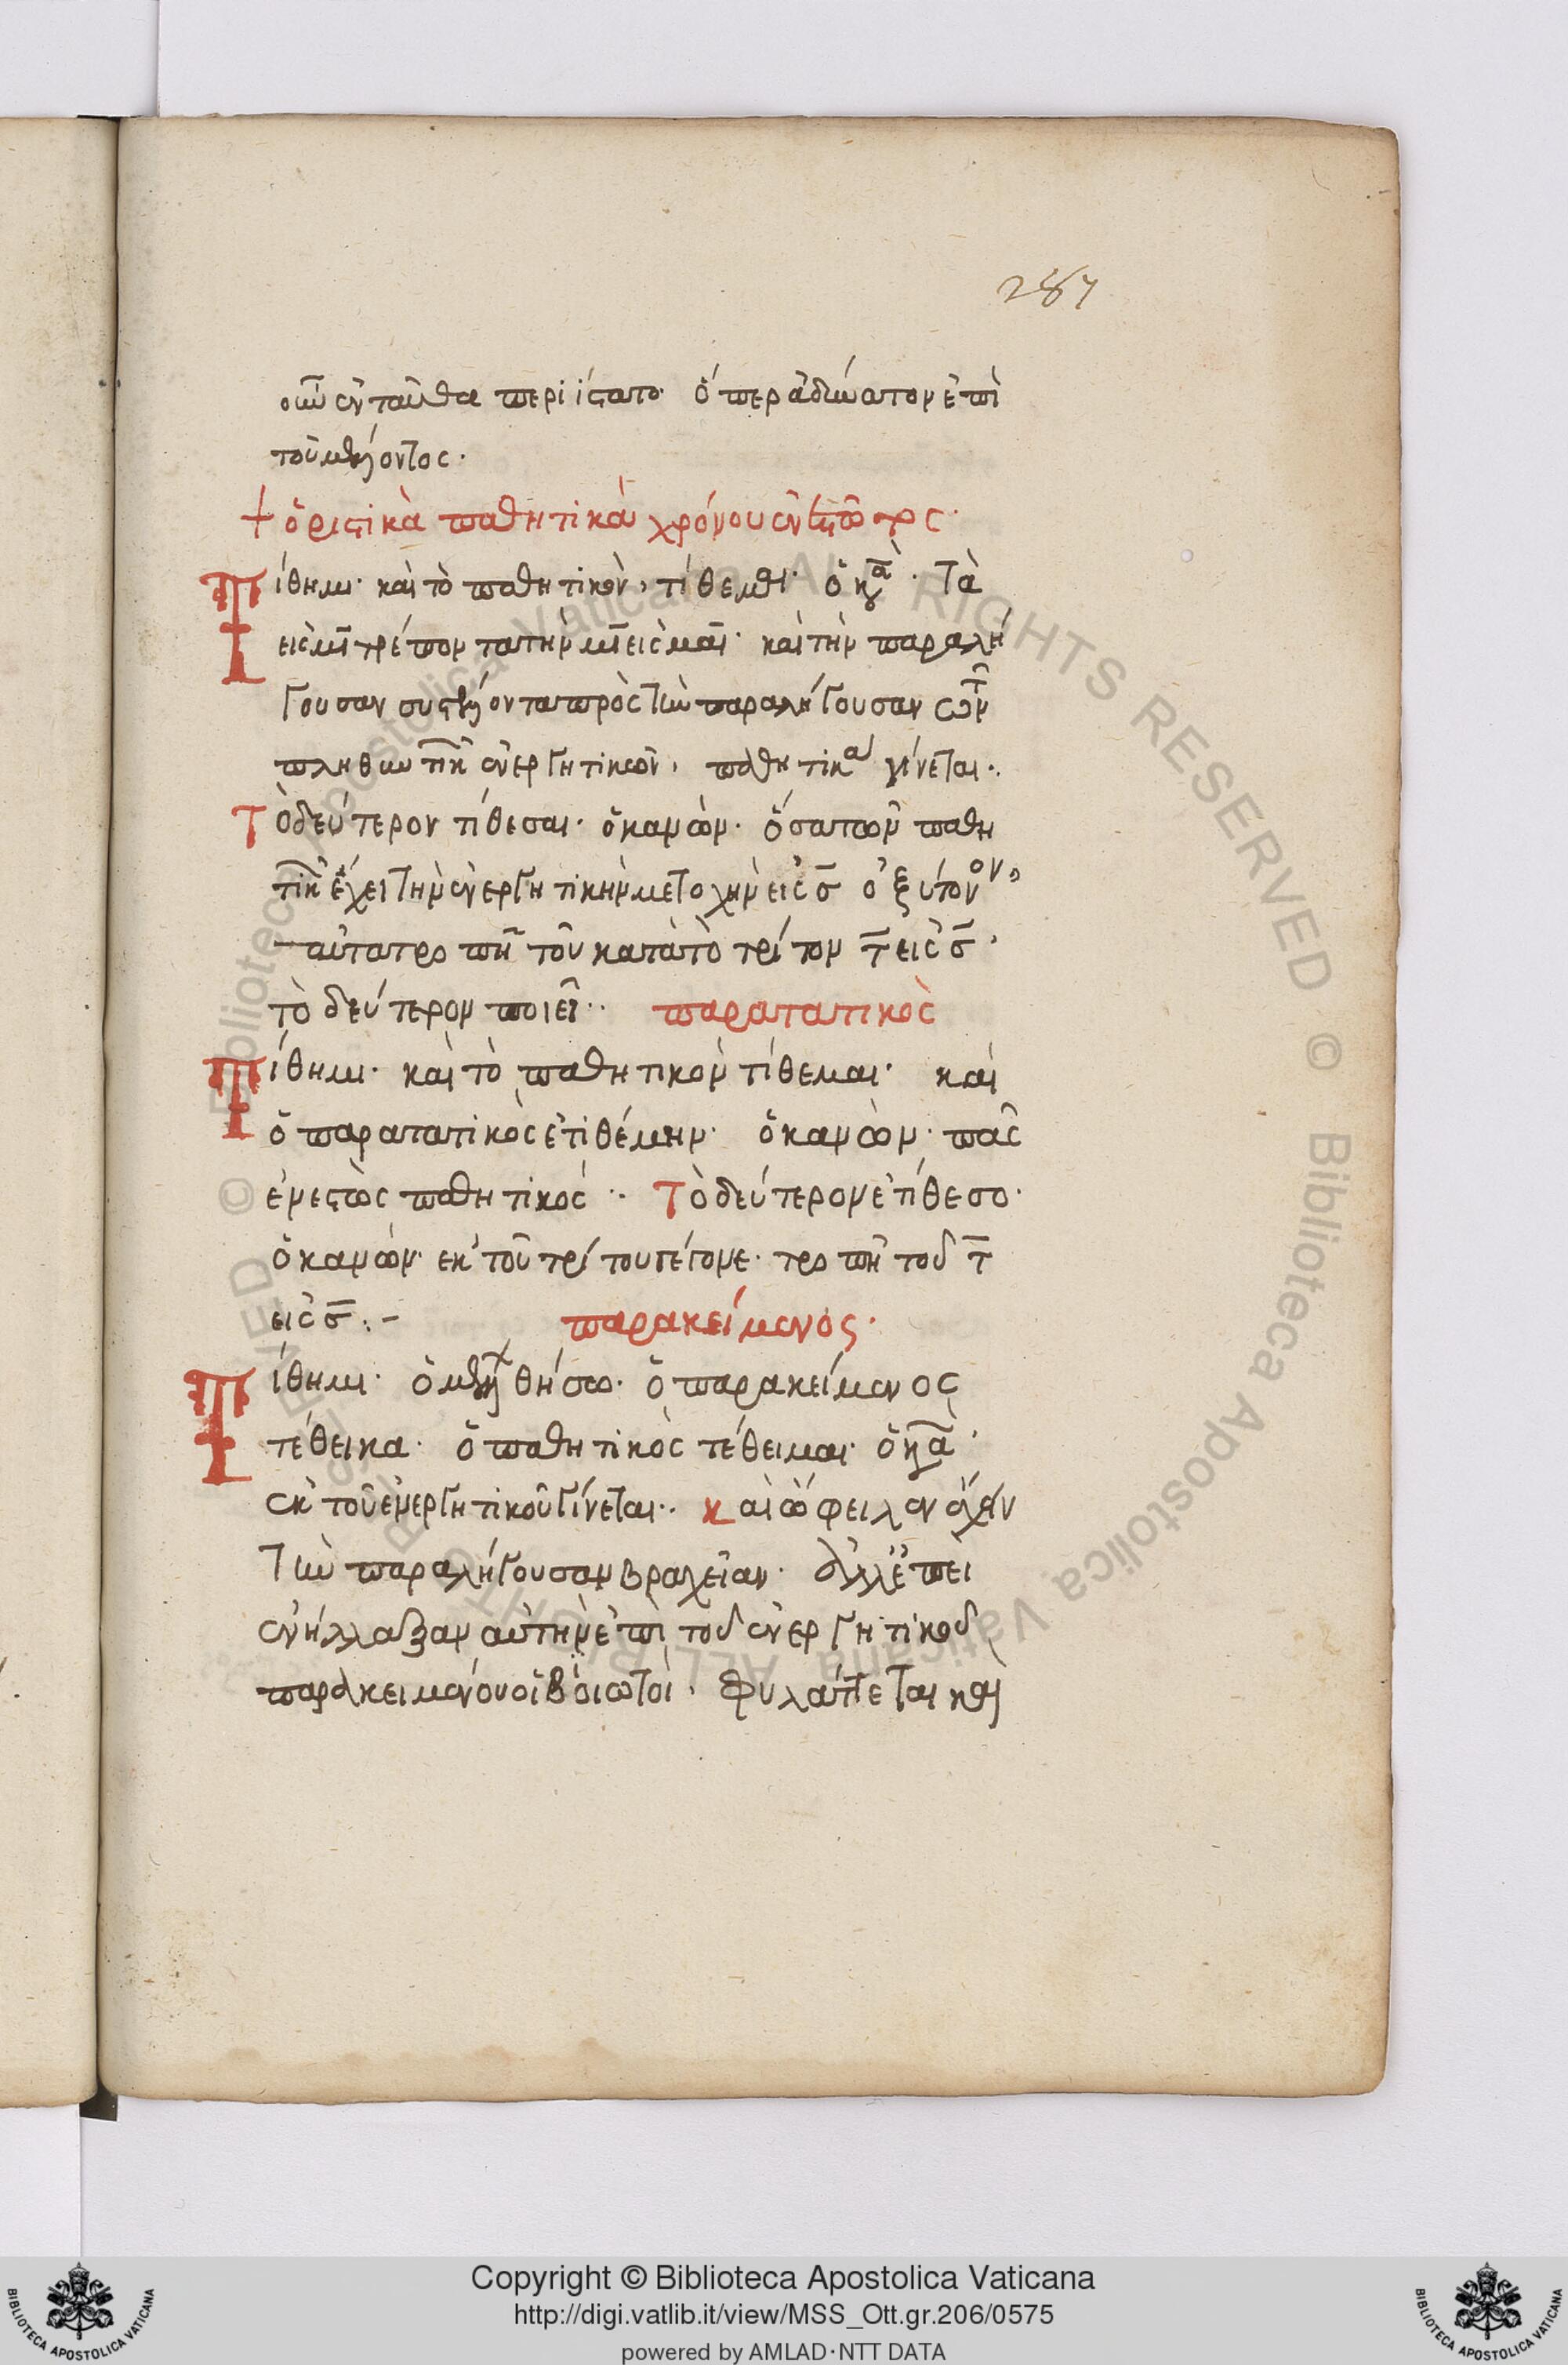 287
οὖν ἐνταῦθα περιίστατο· ὅπερ ἀδύνατον ἐπὶ
τοῦ μέλλοντος·
+ ὁριστικὰ παθητικὰ χρόνου ἐνεστῶτος·
Τίθημι· καὶ τὸ παθητικὸν, τίθεμαι· ὁ κα̅· τὰ
εἰς μι̅ τρέποντα τὴν μι̅ εἰς μαι̅· καὶ τὴν παραλή
γουσαν συστέλλοντα πρὸς τὴν παραλήγουσαν τῶν
πληθυντικ ἐνεργητικῶν, παθητικὰ γίνεται·
Τὸ δεύτερον τίθεσαι· ὁ κανών· ὅσα τῶν παθη
τικ ἔχει τὴν ἐνεργητικὴν μετοχὴν εἰς σ̅ ὀξύτονον,
ταῦτα τροπῆ τοῦ κατὰ τὸ τρίτον τ̅ εἰς σ̅,
τὸ δεύτερον ποιεῖ·· παρατατικὸς
Τίθημι· καὶ τὸ παθητικὸν τίθεμαι· καὶ
ὁ παρατατικὸς ἐτιθέμην· ὁ κανών· πᾶς
ἐνεστὼς παθητικός·· Τὸ δεύτερον ἐτίθεσο·
ὁ κανών· ἐκ τοῦ τρίτου γέγονε· τροπῆ τοῦ τ̅
εἰς σ̅:- παρακείμενος·
Τίθημι· ὁ μέλλων θήσω· ὁ παρακείμενος
τέθεικα· ὁ παθητικὸς τέθειμαι· ὁ κα̅·
ἐκ τοῦ ἐνεργητικοῦ γίνεται·· καὶ ὤφειλεν ἔχειν
τὴν παραλήγουσαν βραχεῖαν· ἀλλ' ἐπεὶ
ἐνήλλαξαν αὐτὴν ἐπὶ τοῦ ἐνεργητικοῦ
παρακειμένου οἱ βοιωτοὶ, φυλάττεται καὶ
Copyright © Biblioteca Apostolica Vaticana
http://digi.vatlib.it/view/MSS_Ott.gr.206/0575
powered by AMLAD·NTT DATA